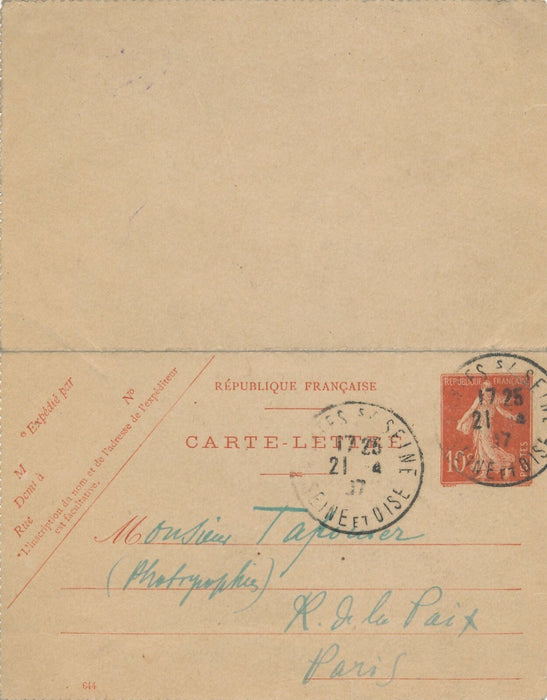 RÉPUBLIQUE FRANÇAISE
CARTE-LETTRE
* Expédié par
N°
M
Domt à
Rue
*L'inscription du nom et de l'adresse de l'expéditeur
est facultative.
RÉPUBLIQUE FRANÇAISE
10c
POSTES
S/ SEINE
17 25
21 4
17
SEINE ET OISE
S/
17 25
21 4
17
NE ET OISE
Monsieur Taponier
(Photographie)
R. de la Paix
Paris
644